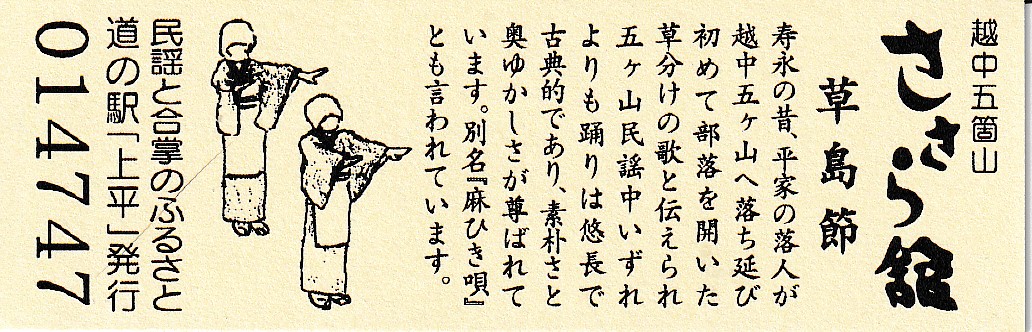 越中五箇山
ささら館
草島節
寿永の昔、平家の落人が
越中五ヶ山へ落ち延び
初めて部落を開いた
草分けの歌と伝えられ
五ヶ山民謡中いずれ
よりも踊りは悠長で
古典的であり、素朴さと
奥ゆかしさが尊ばれて
います。別名『麻ひき唄』
とも言われています。
民謡と合掌のふるさと
道の駅「上平」発行
014747